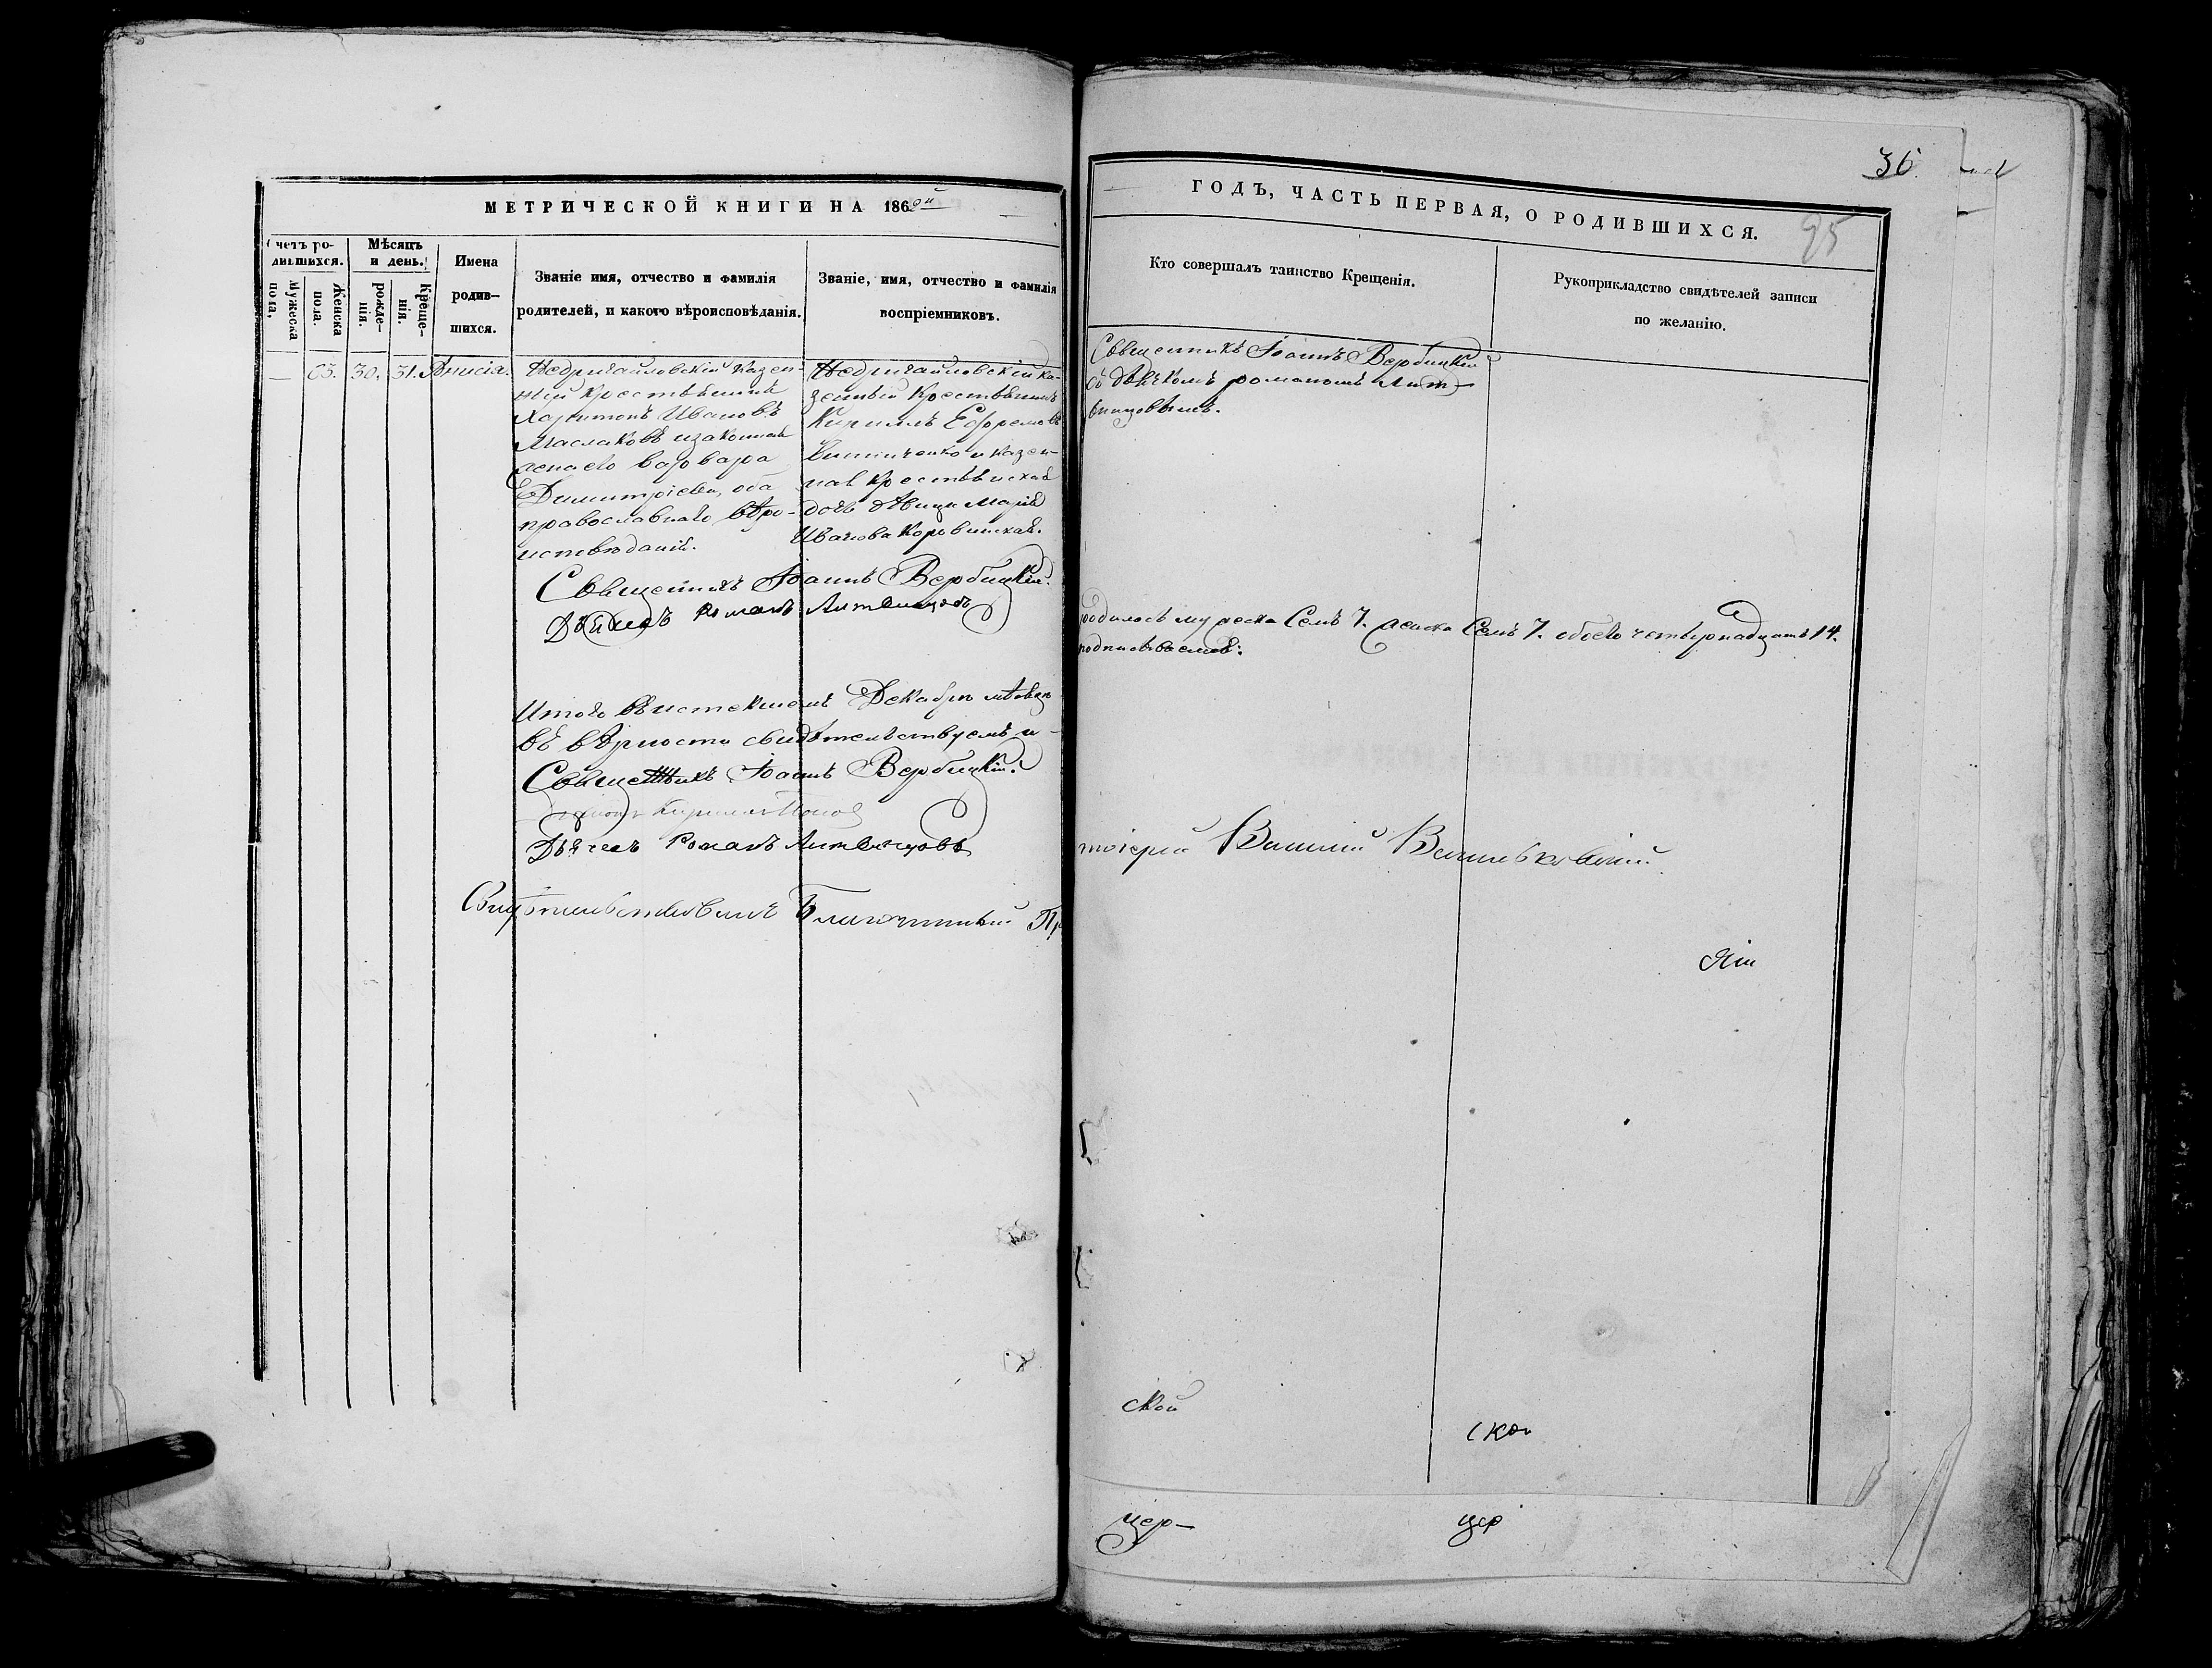 МЕТРИЧЕСКОЙ КНИГИ НА 186
Счетъ ро-
дившихся.
Мужеска пола,
Женска пола.
Мѣсяцъ и день.
рожде-
нія.
Креще-
нія.
Имена
родив-
шихся.
Званіе имя, отчество и фамилія
родителей, и какого вѣроисповѣданія.
Званіе, имя, отчество и фамилія
воспріемниковъ.
— 63. 30. 31. Анисія.
Недригайловскій казен-
ный крестьянинъ
Харитонъ Ивановъ
Маслаковъ и законная
жена его Варвара
Димитріева, оба
православнаго вѣро-
исповѣданія.
Недригайловскій ка-
зенный крестьянинъ
Кириллъ Ефремовъ
и казен-
ная крестьянская
дочь дѣвица Марія
Иванова
Священникъ Іоаннъ Вербицкій.
Дьячекъ Романъ Литвинцовъ
Итого въ истекшемъ Декабрѣ мѣсяцѣ
въ вѣрности свидѣтельствуемъ и
Священникъ Іоаннъ Вербицкій.
Кириллъ Попов
Дьячекъ Романъ Литвинцовъ
Свидѣтельствовалъ Благочинный Пр
36
95
ГОДЪ, ЧАСТЬ ПЕРВАЯ, О РОДИВШИХСЯ.
Кто совершалъ таинство Крещенія.
Рукоприкладство свидѣтелей записи
по желанію.
Священникъ Іоаннъ Вербицкій
съ дьячкомъ Романомъ Лит-
винцовымъ.
родилось мужеска Семь 7. женска Семь 7. обоего четырнадцать 14.
подписываемся:
тоіерей Василій Васильковскій
ской
ско
цер-
цер